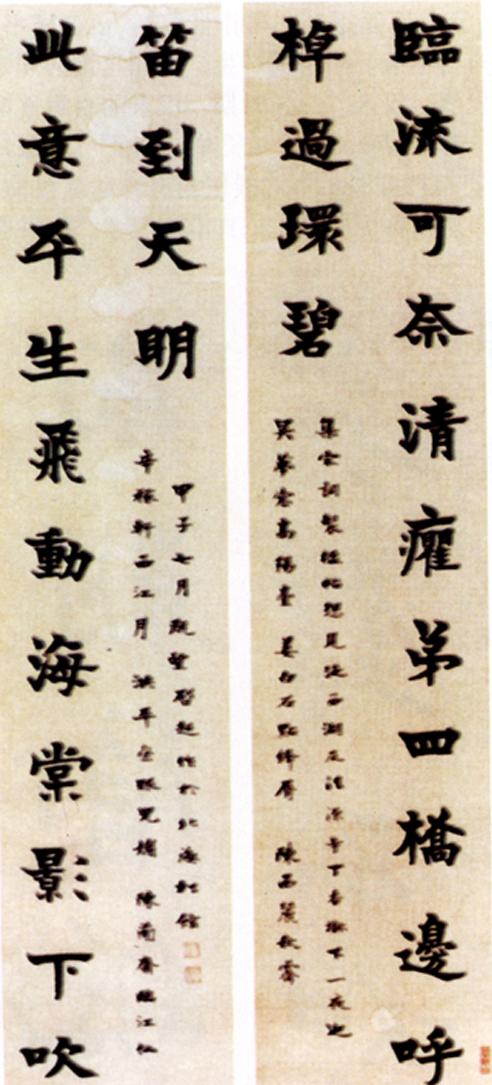 臨流可奈清癯弟四橋邊呼
棹過環碧
集宋詞製楹帖想見西湖及法源寺丁香樹下一夜也
吳夢窗高陽臺 姜白石點絳唇 陳西麓秋霽
此意平生飛動海棠影下吹
笛到天明
辛稼軒西江月 洪平齋眼兒媚 陳簡齋臨江仙
甲子七月既望啓超作於北海松館